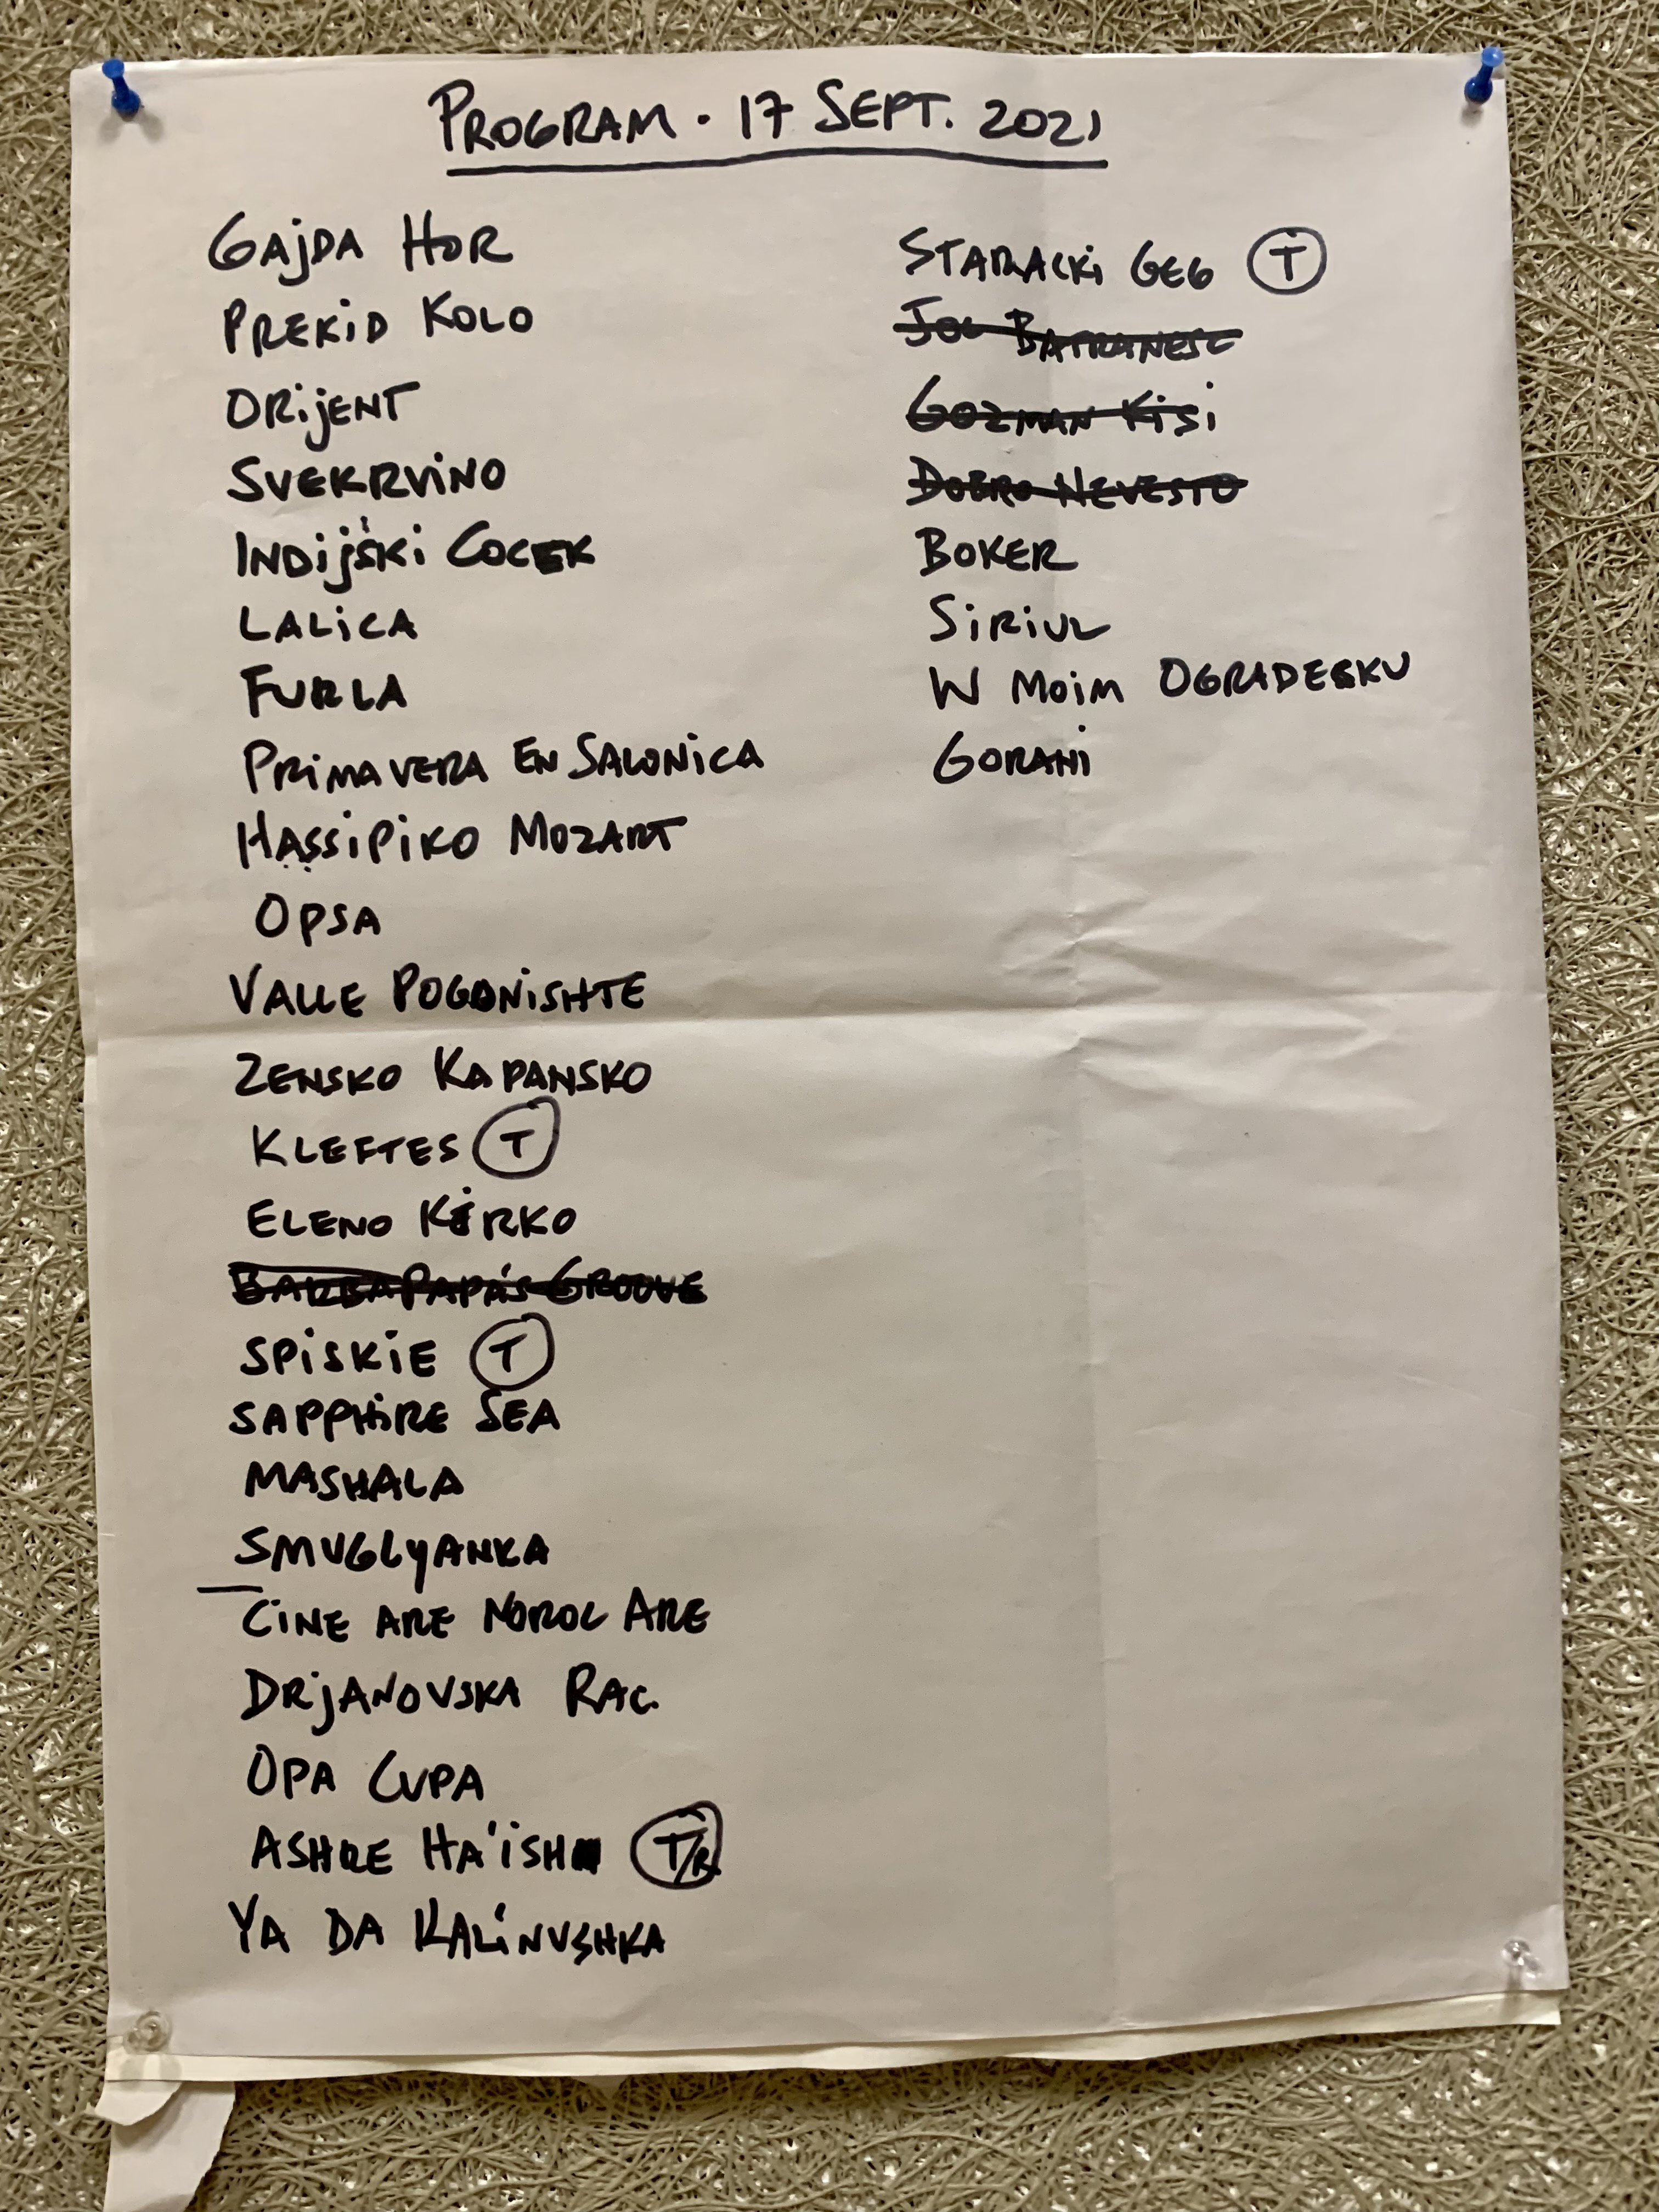 PROGRAM. 17 SEPT. 2021
GAjDA HOR
PREKiD KOLO
ORijENT
SVEKRViNO
INDijSKi COCEK
LALiCA
FURLA
PRiMAVERA EN SALONiCA
HASSiPiKO MOZART
OPSA
VALLE POGONiSHTE
ZENSKO KAPANSKO
KLEFTES T
ELENO KERKO
BARBAPAPA'S GROOVE
SPiSKiE T
SAPPHiRE SEA
MASHALA
SMUGLyANKA
CiNE ARE NOROC ARE
DRjANOVSKA RAC.
OPA CUPA
ASHRE HA'iSH T/R
YA DA KALiNUSHKA
STARACKi GEG T
JOC BATRANESC
GOZMAN KiSi
DOBRO NEVESTO
BOKER
SiRiUL
W MOiM OGRADESKU
GORANi